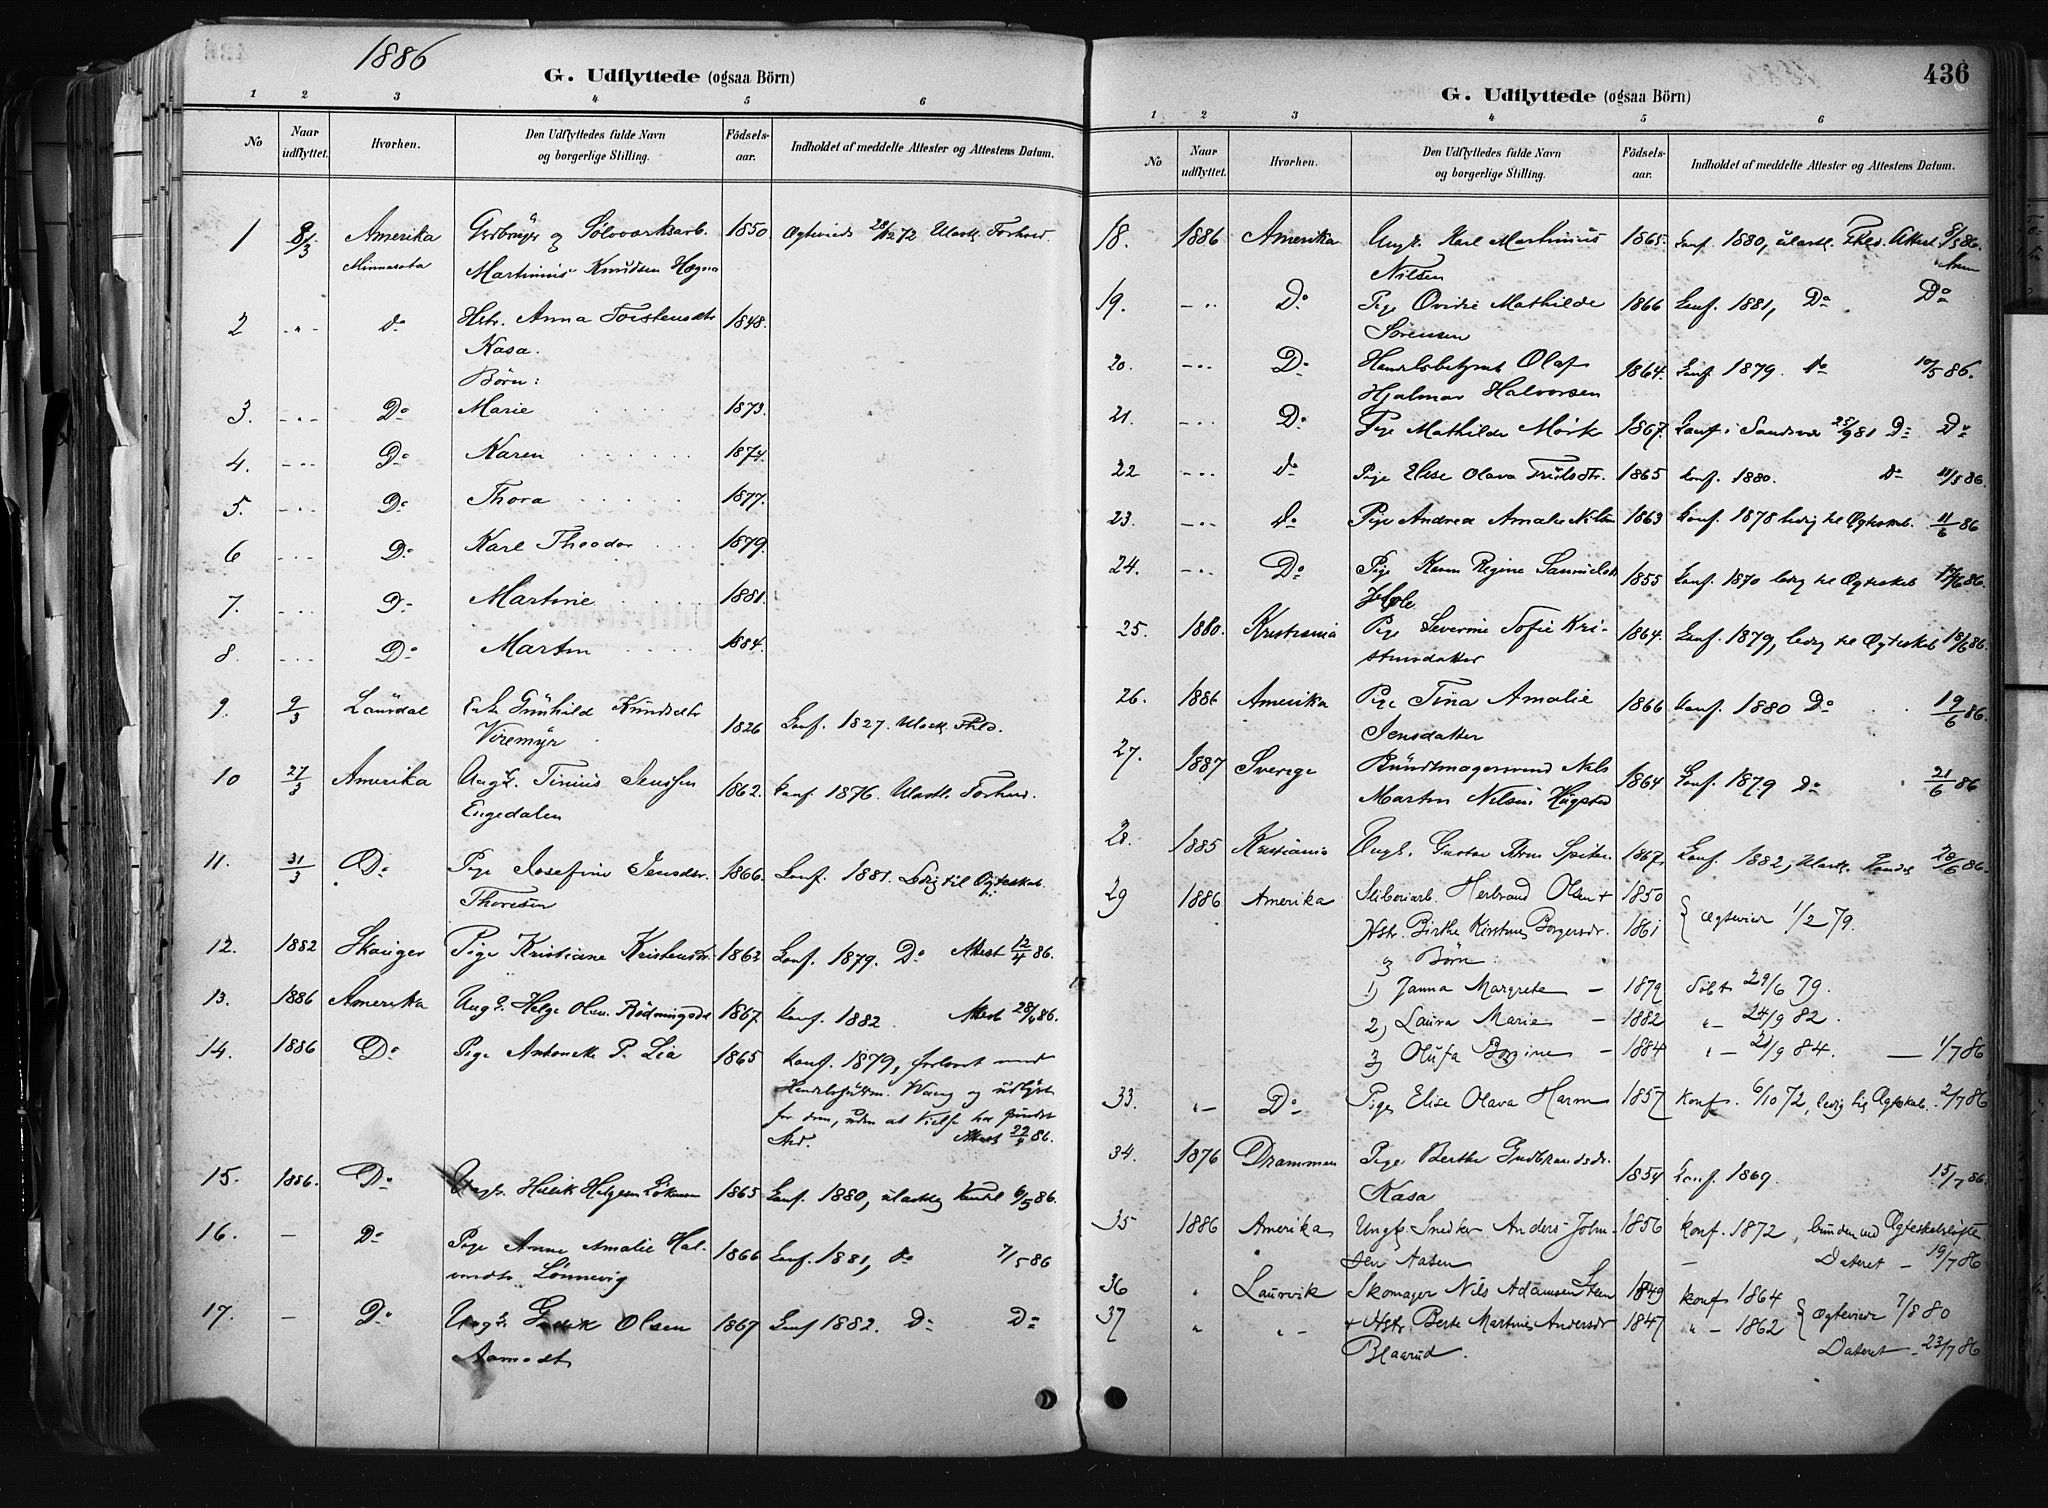 1886
G. Udflyttede (ogsaa Börn)
1 2 3 4 5 6
No Naar udflyttet. Hvorhen. Den Udflyttedes fulde Navn og borgerlige Stilling. Födsels-aar. Indholdet af meddelte Attester og Attestens Datum.
1 9/3 Amerika Grdbruger og Sölvværksarb. 1850 Ægteviede 28/12 72 Ulastl. Forhold.
Minnesota Martinius Knudsen Hægna
2 " - Do Hstr. Anna Torstensdtr. 1848.
Kasa.
Börn:
3. - " - Do Marie 1873.
4. - " - Do Karen 1874.
5. - " - Do Thora 1877.
6 - " - Do Karl Theodor 1879.
7. - " - Do Martine 1881.
8. - " - Do Martin 1884.
9. 9/3 Laurdal Enke Gunhild Knudsdtr 1826 Conf. 1827. Ulastl. Fhld.
Viremyr
10 27/3 Amerika Ungk. Tinius Jenssen 1862. Konf. 1876. Ulastl. Forhold.
Engedalen
11. 31/3 Do Pige Josefine Jensdtr. 1866. Conf. 1881. Ledig til Ægteskab.
Thoresen
12. 1882 Skauger Pige Kristiane Kristensdtr. 1863 Conf. 1879. Do Attest 12/4 86.
13. 1886 Amerika Ungk. Helge Olsen 1867. Konf. 1882. Attest 28/4 86.
14. 1886 Do Pige Antonette P. Lia 1865 Konf. 1879, forlovet med
Wang og udlyst
for dem, uden at Vielse har fundet
Sted. Attest 86.
15. 1886. Do Ungk. Helgesen 1865 Conf. 1880, ulastelig Vandel 6/5 86.
16. - Do Pige Anne Amalie Hal- 1866 Conf. 1881, do 7/5 86
vorsdtr. Lönnevig
17. - Do Ungk. Olsen 1867 Conf 1882. Do Do
Aamodt
436
G. Udflyttede (ogsaa Börn)
1 2 3 4 5 6
No Naar udflyttet. Hvorhen. Den Udflyttedes fulde Navn og borgerlige Stilling. Födsels-aar. Indholdet af meddelte Attester og Attestens Datum.
18. 1886 Amerika Ungk. Karl Martinius 1865. Conf. 1880, ulastl. Fhld. Attest 8/5 86.
Nilsen
19. - " - Do Pige Ovidie Mathilde 1866 Conf. 1881, Do Do
Sörensen
20. - " - Do Handelsbetjent Olaf 1864. Conf. 1879. Do 10/5 86.
Hjalmar Halvorsen
21. - " - Do Pige Mathilde Mörk 1867. Konf. i Sandsvær 25/9 81 Do Do
22 - " - do Pige Else Olava 1865 Konf. 1880. Do 11/5 86.
23. - " - Do Pige Andrea Amalie Nilsen 1863 Konf. 1878 ledig til Ægteskab. 11/6 86
24. - " - Do Pige Karen Regine Samuelsdtr 1855 Conf. 1870 ledig til Ægteskab 86.
25. 1880. Kristiania Pige Severine Sofie Kri- 1864. Conf. 1879, ledig til Ægteskab 18/6 86.
stensdatter
26. 1886 Amerika Pige Tina Amalie 1866 Konf. 1880 Do 19/6 86.
Jensdatter
27. 1887 Sverige Bundtmagersvend Nils 1864 Conf. 1879 Do 21/6 86
Martin Nilsen Hugsted
28. 1885 Kristiania Ungk. Gustav 1867. Conf. 1882, Ulastl. Vandel 28/6 86.
29 1886 Amerika Stiboriarb. Herbrand Olsen + 1850
Hstr. Birthe Kirstine Borgersdr. 1861 } Ægteviede 1/2 79.
3 Börn:
1) Janna Margrete - 1879 Döbt 29/6 79.
2) Laura Marie - 1882 " - 24/9 82.
3) Olufa Borgine - 1884 " - 21/9 84. - 1/7 86
33. " - Do Pige Elise Olava Harm 1857 Konf. 6/10 72, ledig til Ægteskab. 2/7 86
34. 1876 Drammen Pige Berthe Gudbrandsdr. 1854 Conf. 1869. 15/7 86.
Kasa
35 1886 Amerika Ungk. Snedker Anders John- 1856 konf. 1872, bunden ved Ægteskabslöfte
sen Aasen Dateret - 19/7 86
36 " Laurvik Skomager Nils Adamsen Steen 1849 konf 1864
37 " " - + Hstr. Berte Martine Andersdr 1847 " - 1862 } Ægteviede 7/8 80
Blaarud. Dateret - 23/7 86